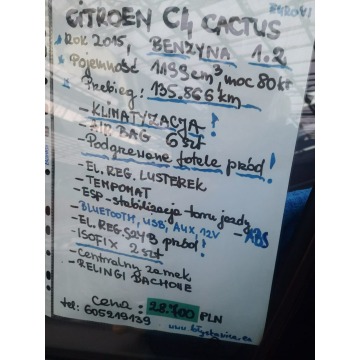 CITROEN C4 CACTUS
Rok 2015, BENZYNA 1.2
Pojemność 1199 cm³, moc 80kr
Przebieg: 135.866 km
- KLIMATYZACJA!
- AIR BAG 6szt
- Podgrzewane fotele przód!
- EL. REG. LUSTEREK
- TEMPOMAT
- ESP - stabilizacja toru jazdy
- ABS
- BLUETOOTH, USB, AUX, 12V
- EL. REG. SZYB przód!
- ISOFIX 2szt
- Centralny zamek
- RELINGI DACHOWE
Cena: 28.700 PLN
tel: 605219139